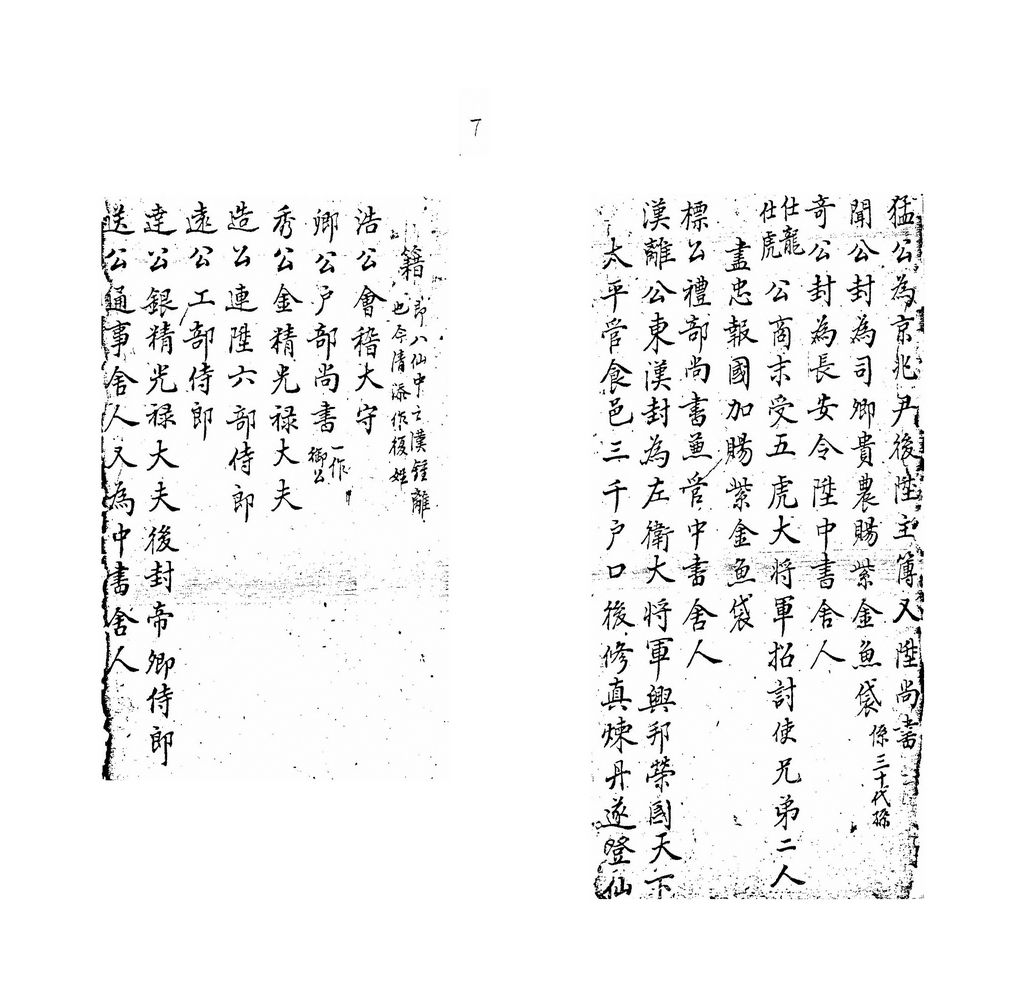 7
猛公為京兆尹後陞主簿又陞尚書
聞公封為司卿貴農賜紫金魚袋係三十代孫
奇公封為長安令陞中書舍人
仕龍
仕虎
公商末受五虎大将軍招討使兄弟二人
盡忠報國加賜紫金魚袋
標公禮部尚書兼管中書舍人
漢離公東漢封為左衛大将軍興邦榮國天下
太平管食邑三千户口後修真煉丹遂登仙
籍即八仙中之漢鍾離
也今清添作複姓
浩公會稽大守
卿公户部尚書一作
御公
秀公金精光禄大夫
造公連陞六部侍郎
遠公工部侍郎
達公銀精光禄大夫後封帝卿侍郎
送公通事舍人又為中書舍人